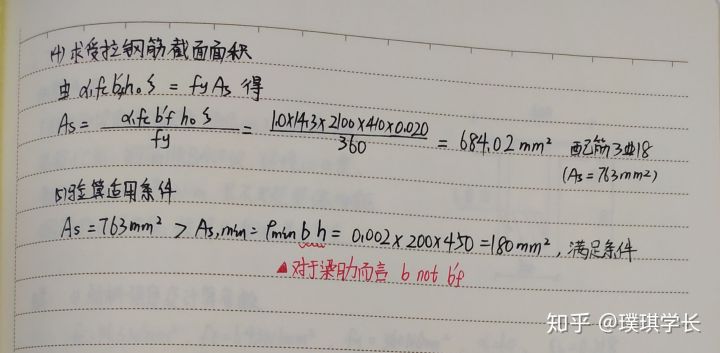 (4)求受拉钢筋截面面积
由 α₁fcb'fh₀ξ = fyAs 得
As = α₁fcb'fh₀ξ / fy = 1.0×14.3×2100×410×0.020 / 360 = 684.02mm² 配筋3⌀18
(As=763mm²)
(5)验算适用条件
As=763mm² > As,min = ρmin b h = 0.002×200×450=180mm², 满足条件
▲对于梁肋而言 b not b'f
知乎 @璞琪学长